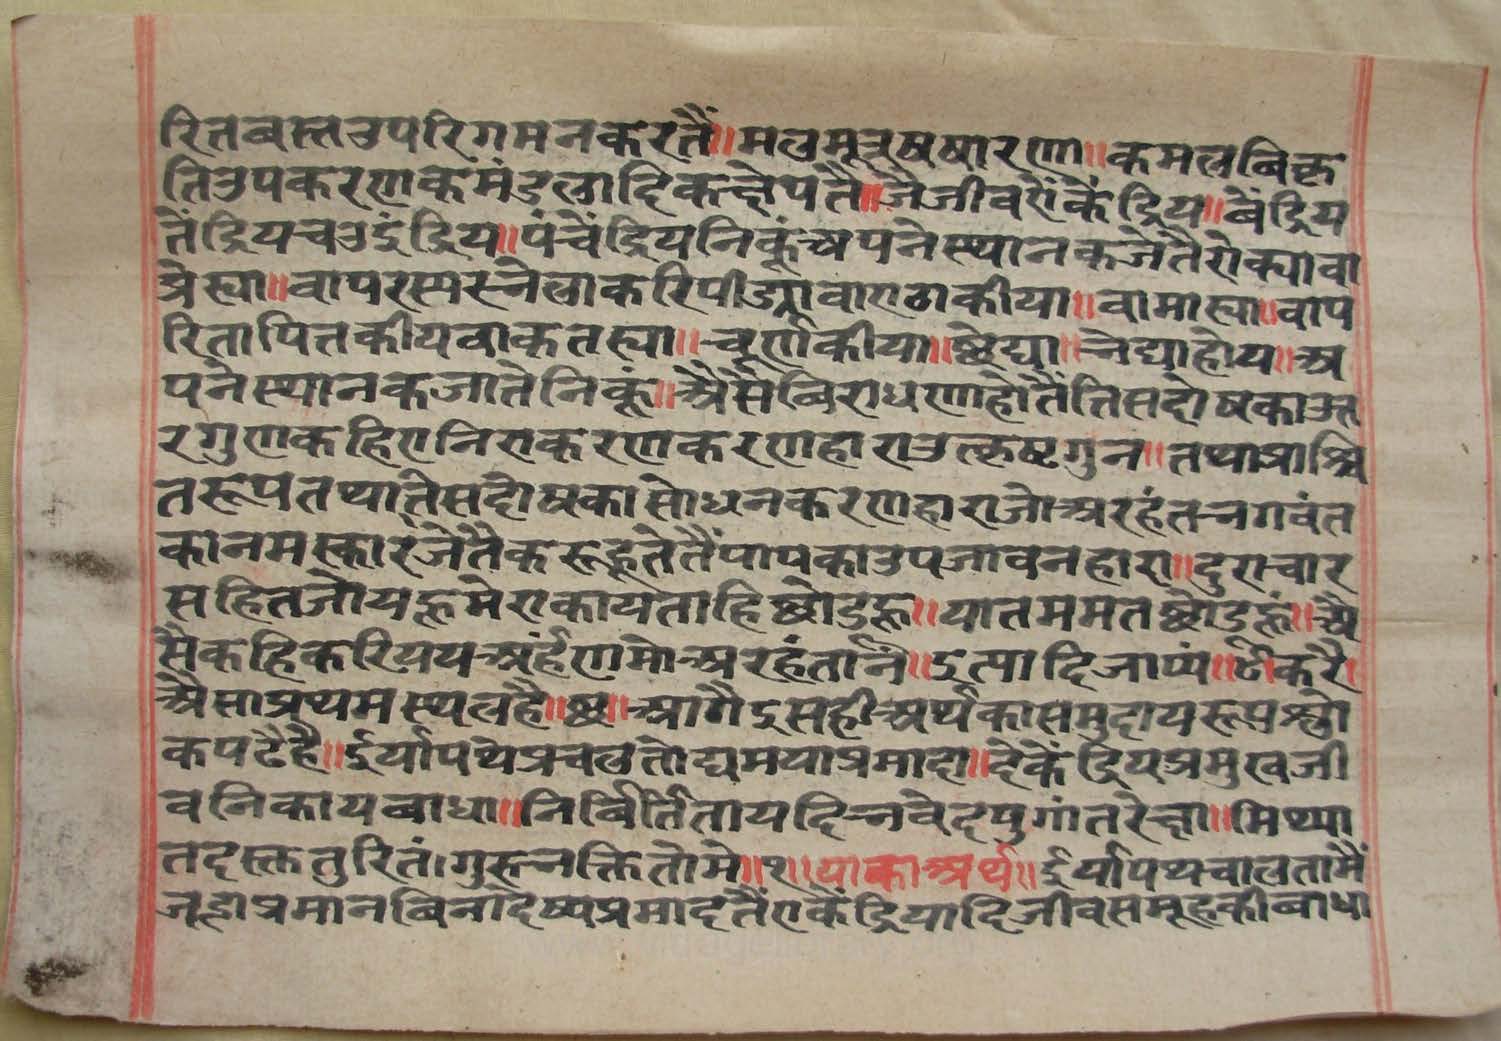 रितबस्तउपरिगमनकरतैं॥मलमूत्रषषारण॥कमलबिकृ
तिउपकरणकमंडलादिकक्षेपतै॥जैजीवऐकैंद्रिय॥बेंद्रिय
तेंद्रियचउइंद्रिय॥पंचेंद्रियनिकूंअपनेस्थानकजेतैरोक्यावा
प्रेस्या॥वापरस्परस्नेलाकरिपीड्यावाएठाकीया॥वामास्या॥वाप
रितापितकीयवाकतस्या॥चूर्णकीया॥छेद्या॥भेद्याहोय॥अ
पनेस्थानकजातेनिकूं॥अैसैंबिराधणाहोतैंतिसदोषकाउत्त
रगुणकहिएनिराकरणकरणहाराउत्कृष्टगुन॥तथाप्राश्चि
तरूपतथातिसदोषकासोधनकरणहाराजोअरहंतभगवंत
कानमस्कारजेतैकरूहूतेतैंपापकाउपजावनहारा॥दुराचार
सहितजोयह्नमेराकायताहिछोडूह्न॥यातममतछोडूह्नं॥अै
सैकहिकरिययअर्हंणमोअरहंतानं॥इत्यादिजाप्यं॥९॥करै।
अैसाप्रथमस्थलहै॥छ॥आगैइसहीअर्थकासमुदायरूपश्लो
कपढैहै॥ईर्यापथेप्रचलतोद्यमयाप्रमादा॥देकेंद्रियप्रमुखजी
वनिकायबाधा॥निर्वर्तितायदिभवेदयुगांतरेक्षा॥मिथ्या
तदस्तुदुरितं।गुरुभक्तितोमे॥१॥याकाअर्थ॥ईर्यापथचालतामैं
जूडाप्रमानबिनादेष्यप्रमादतैंएकेंद्रियादिजीवसमूहकीबाधा